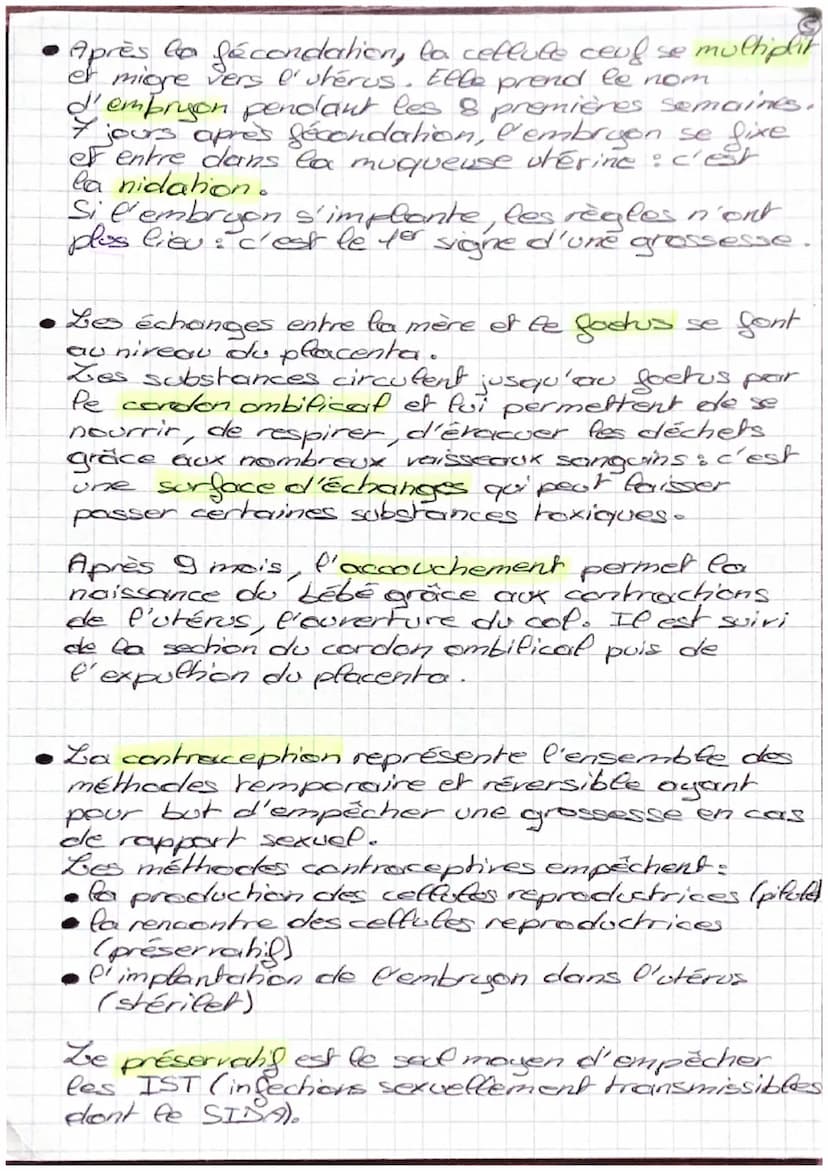 5
• Après la fécondation, la cellule œuf se multiplit
et migre vers l'utérus. Elle prend le nom
d'embryon pendant les 8 premières semaines.
7 jours après fécondation, l'embryon se fixe
et entre dans la muqueuse utérine : c'est
la nidation.
Si l'embryon s'implante, les règles n'ont
plus lieu : c'est le 1er signe d'une grossesse.
• Les échanges entre la mère et le foetus se font
au niveau du placenta.
Les substances circulent jusqu'au foetus par
le cordon ombilical et lui permettent de se
nourrir, de respirer, d'évacuer les déchets
grâce aux nombreux vaisseaux sanguins : c'est
une surface d'échanges qui peut laisser
passer certaines substances toxiques.
Après 9 mois, l'accouchement permet la
naissance du bébé grâce aux contractions
de l'utérus, l'ouverture du col. Il est suivi
de la section du cordon ombilical puis de
l'expultion du placenta.
• La contraception représente l'ensemble des
méthodes temporaire et réversible ayant
pour but d'empêcher une grossesse en cas
de rapport sexuel.
Les méthodes contraceptives empêchent :
• la production des cellules reproductrices (pilule)
• la rencontre des cellules reproductrices
(préservatif)
• l'implantation de l'embryon dans l'utérus
(stérilet)
Le préservatif est le seul moyen d'empêcher
les IST (infections sexuellement transmissibles
dont le SIDA).